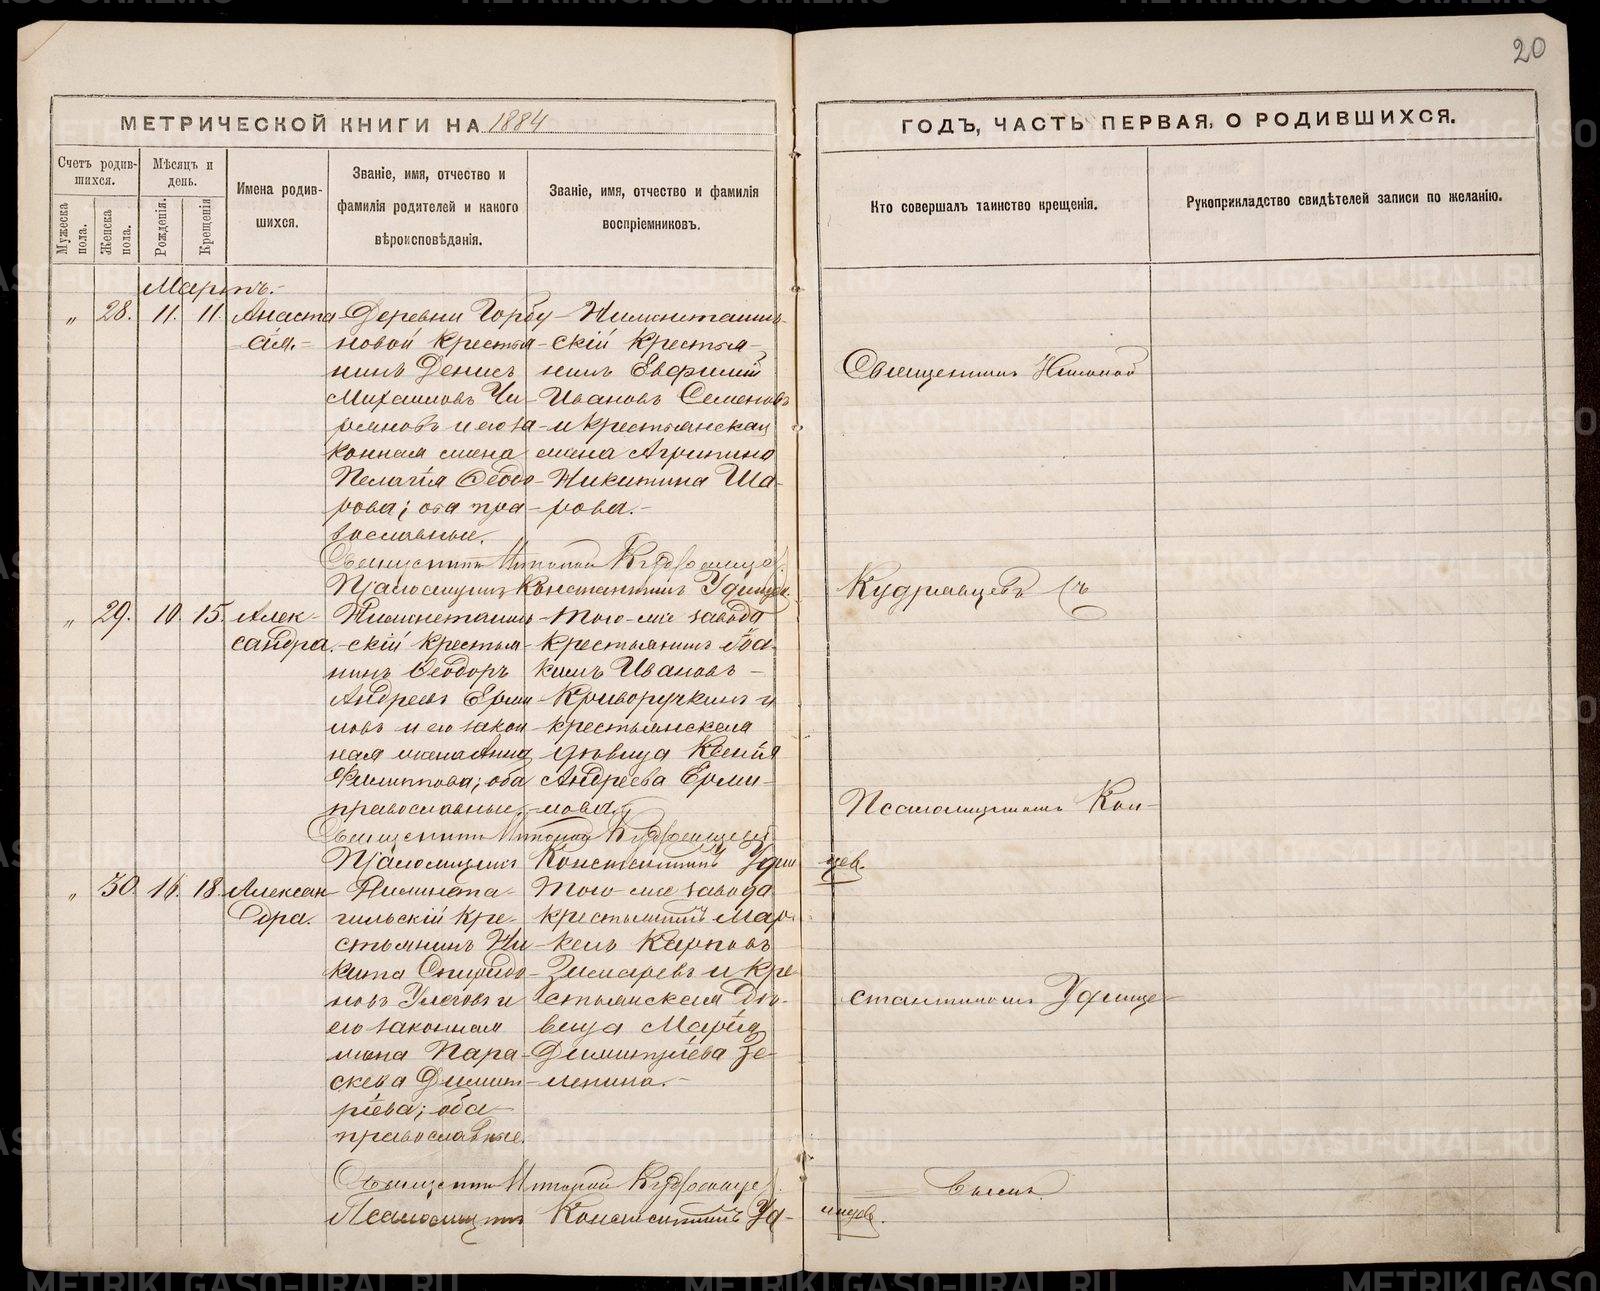 20
МЕТРИЧЕСКОЙ КНИГИ НА 1884
ГОДЪ, ЧАСТЬ ПЕРВАЯ, О РОДИВШИХСЯ.
Счетъ родив-
шихся.
Мужеска
пола.
Женска
пола.
Мѣсяцъ и
день.
Рожденія.
Крещенія
Имена родив-
шихся.
Званіе, имя, отчество и
фамилія родителей и какого
вѣроисповѣданія.
Званіе, имя, отчество и фамилія
воспріемниковъ.
Кто совершалъ таинство крещенія.
Рукоприкладство свидѣтелей записи по желанію.
Мартъ.
„ 28. 11. 11. Анаста-
сія.
Деревни Горбу-
новой крестья-
нинъ Денисъ
Михаиловъ Чи-
и его за-
конная жена
Пелагія Ѳедо-
рова; оба пра-
вославные.
Нижнетагиль-
скій крестья-
нинъ Евфимій
Ивановъ Семеновъ
и крестьянская
жена Агрипина
Никитина Ша-
рова.
Священникъ Николай Кудрявцевъ.
Псаломщикъ Константинъ
„ 29. 10. 15. Алек-
сандра.
Нижнетагиль-
скій крестья-
нинъ Ѳеодоръ
Андреевъ Ерми-
ловъ и его закон-
ная жена Анна
Филиппова; оба
православные.
Того-же завода
крестьянинъ
Ивановъ
Криворучкинъ и
крестьянская
дѣвица Ксенія
Андреева Ерми-
лова.
Священникъ Николай Кудрявцевъ
Псаломщикъ Константинъ
цев.
„ 30. 16. 18. Алексан-
дра.
Нижнета-
гильскій кре-
стьянинъ Ни-
кита Спиридо-
новъ и
его законная
жена Пара-
скева Димит-
ріева; оба
православные.
Того-же завода
крестьянинъ Мар-
келъ Карповъ
и кре-
стьянская дѣ-
вица Марія
Димитріева Зе-
ленина.
Священникъ Николай Кудрявцев.
Псаломщикъ Константинъ
Священникъ Николай
Кудрявцевъ съ
Псаломщикомъ Кон-
стантиномъ
вымъ.